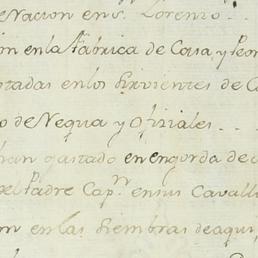 Nacion en S. Lorenzo
on en la Fabrica de Cosa y
tadas en los Sirvientes de
o de Negua y Ofiziales
han gastado en engorda de
el Padre Capn. en sus Cavall
n en las Siembras de aqui